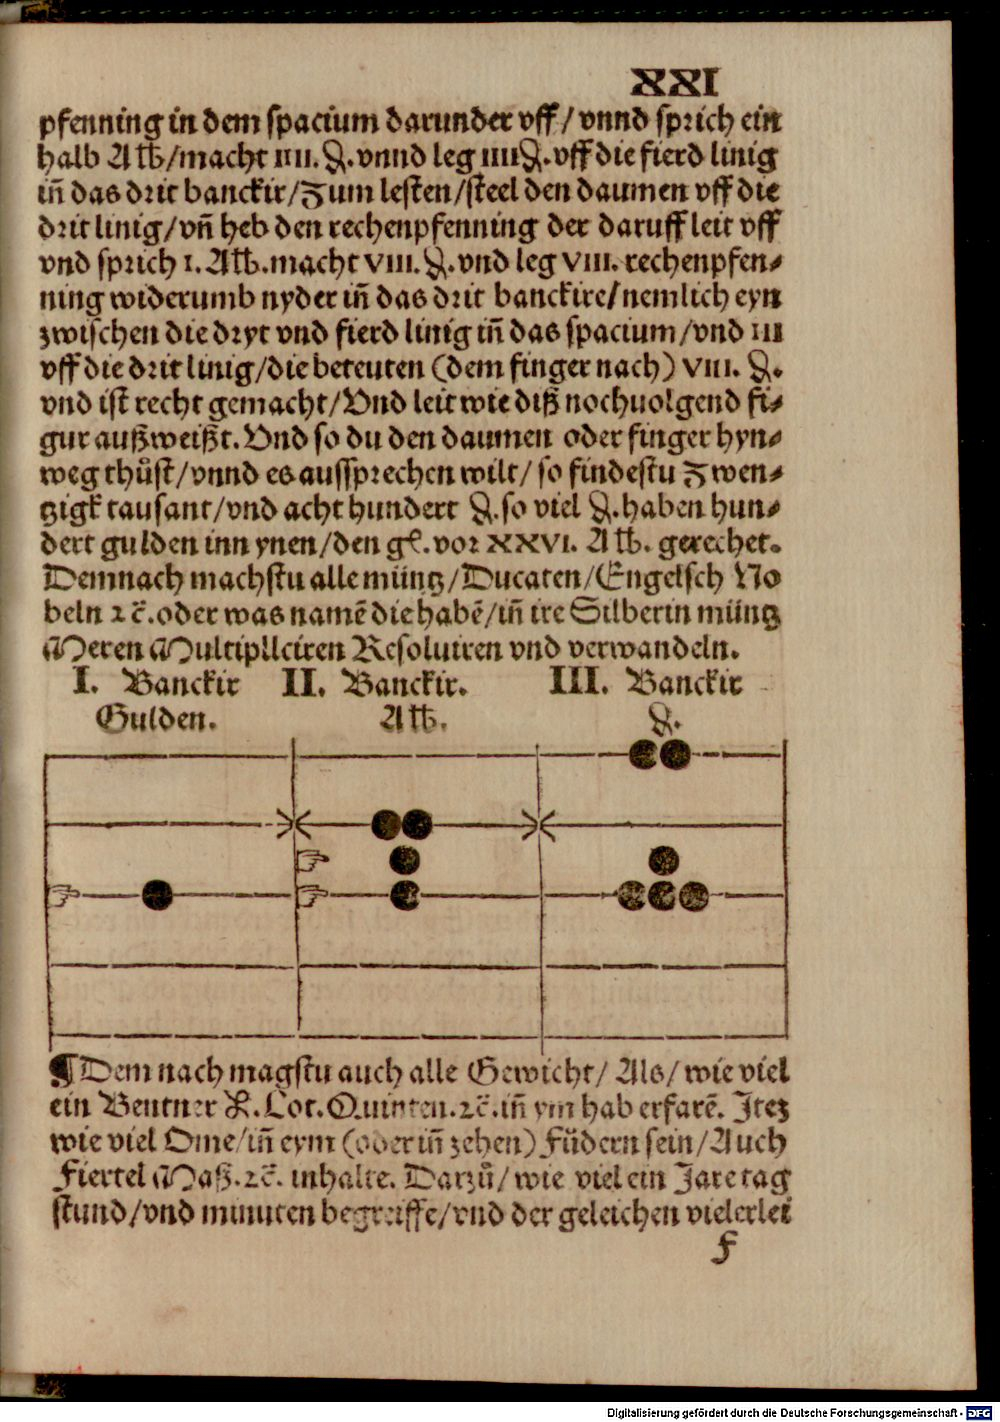 XXI
pfenning in dem spacium darunder vff/vnnd sprich ein
halb Alb/macht iiii. ₰.vnnd leg iiii₰.vff die fierd linig
iñ das drit banckir/Zum lesten/steel den daumen vff die
drit linig/vñ heb den rechenpfenning der daruff leit vff
vnd sprich i. Alb.macht viii. ₰.vnd leg viii. rechenpfen⸗
ning widerumb nyder iñ das drit banckire/nemlich eyn
zwischen die dryt vnd fierd linig iñ das spacium/vnd iii
vff die drit linig/die beteuten (dem finger nach) viii. ₰.
vnd ist recht gemacht/Vnd leit wie diß nochuolgend fi⸗
gur außweißt. Vnd so du den daumen oder finger hyn⸗
weg thůst/vnnd es aussprechen wilt/so findestu Zwen⸗
tzigk tausant/vnd acht hundert ₰.so viel ₰.haben hun⸗
dert gulden inn ynen/den gl.vor xxvi. Alb. gerechet.
Demnach machstu alle müntz/Ducaten/Engelsch No
beln ⁊c̈.oder was namē die habē/iñ ire Silberin müntz
Meren Multiplleiren Resoluiren vnd verwandeln.
I. Banckir II. Banckir. III. Banckir
Gulden. Alb. ₰.
¶Dem nach magstu auch alle Gewicht/Als/wie viel
ein Zentner ℔.Lot.Quinten.⁊c̈.iñ ym hab erfarē. Itez
wie viel Ome/iñ eym (oder iñ zehen) Füdern sein/Auch
Fiertel Maß.⁊c̈. inhalte. Darzů/wie viel ein Jare tag
stund/vnd minuten begreiffe/vnd der geleichen vielerlei
F
Digitalisierung gefördert durch die Deutsche Forschungsgemeinschaft - DFG